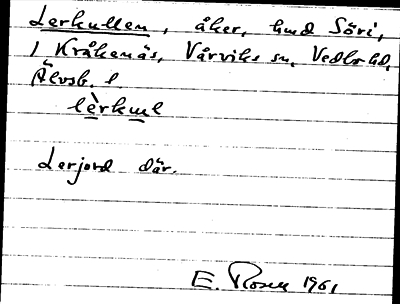 Lerkullen, åker, hmd Söri,
1 Kråkenäs, Vårviks sn, Vedbo hd,
Älvsb. l
lèrkuul
Lerjord där.
E. Rosell 1961